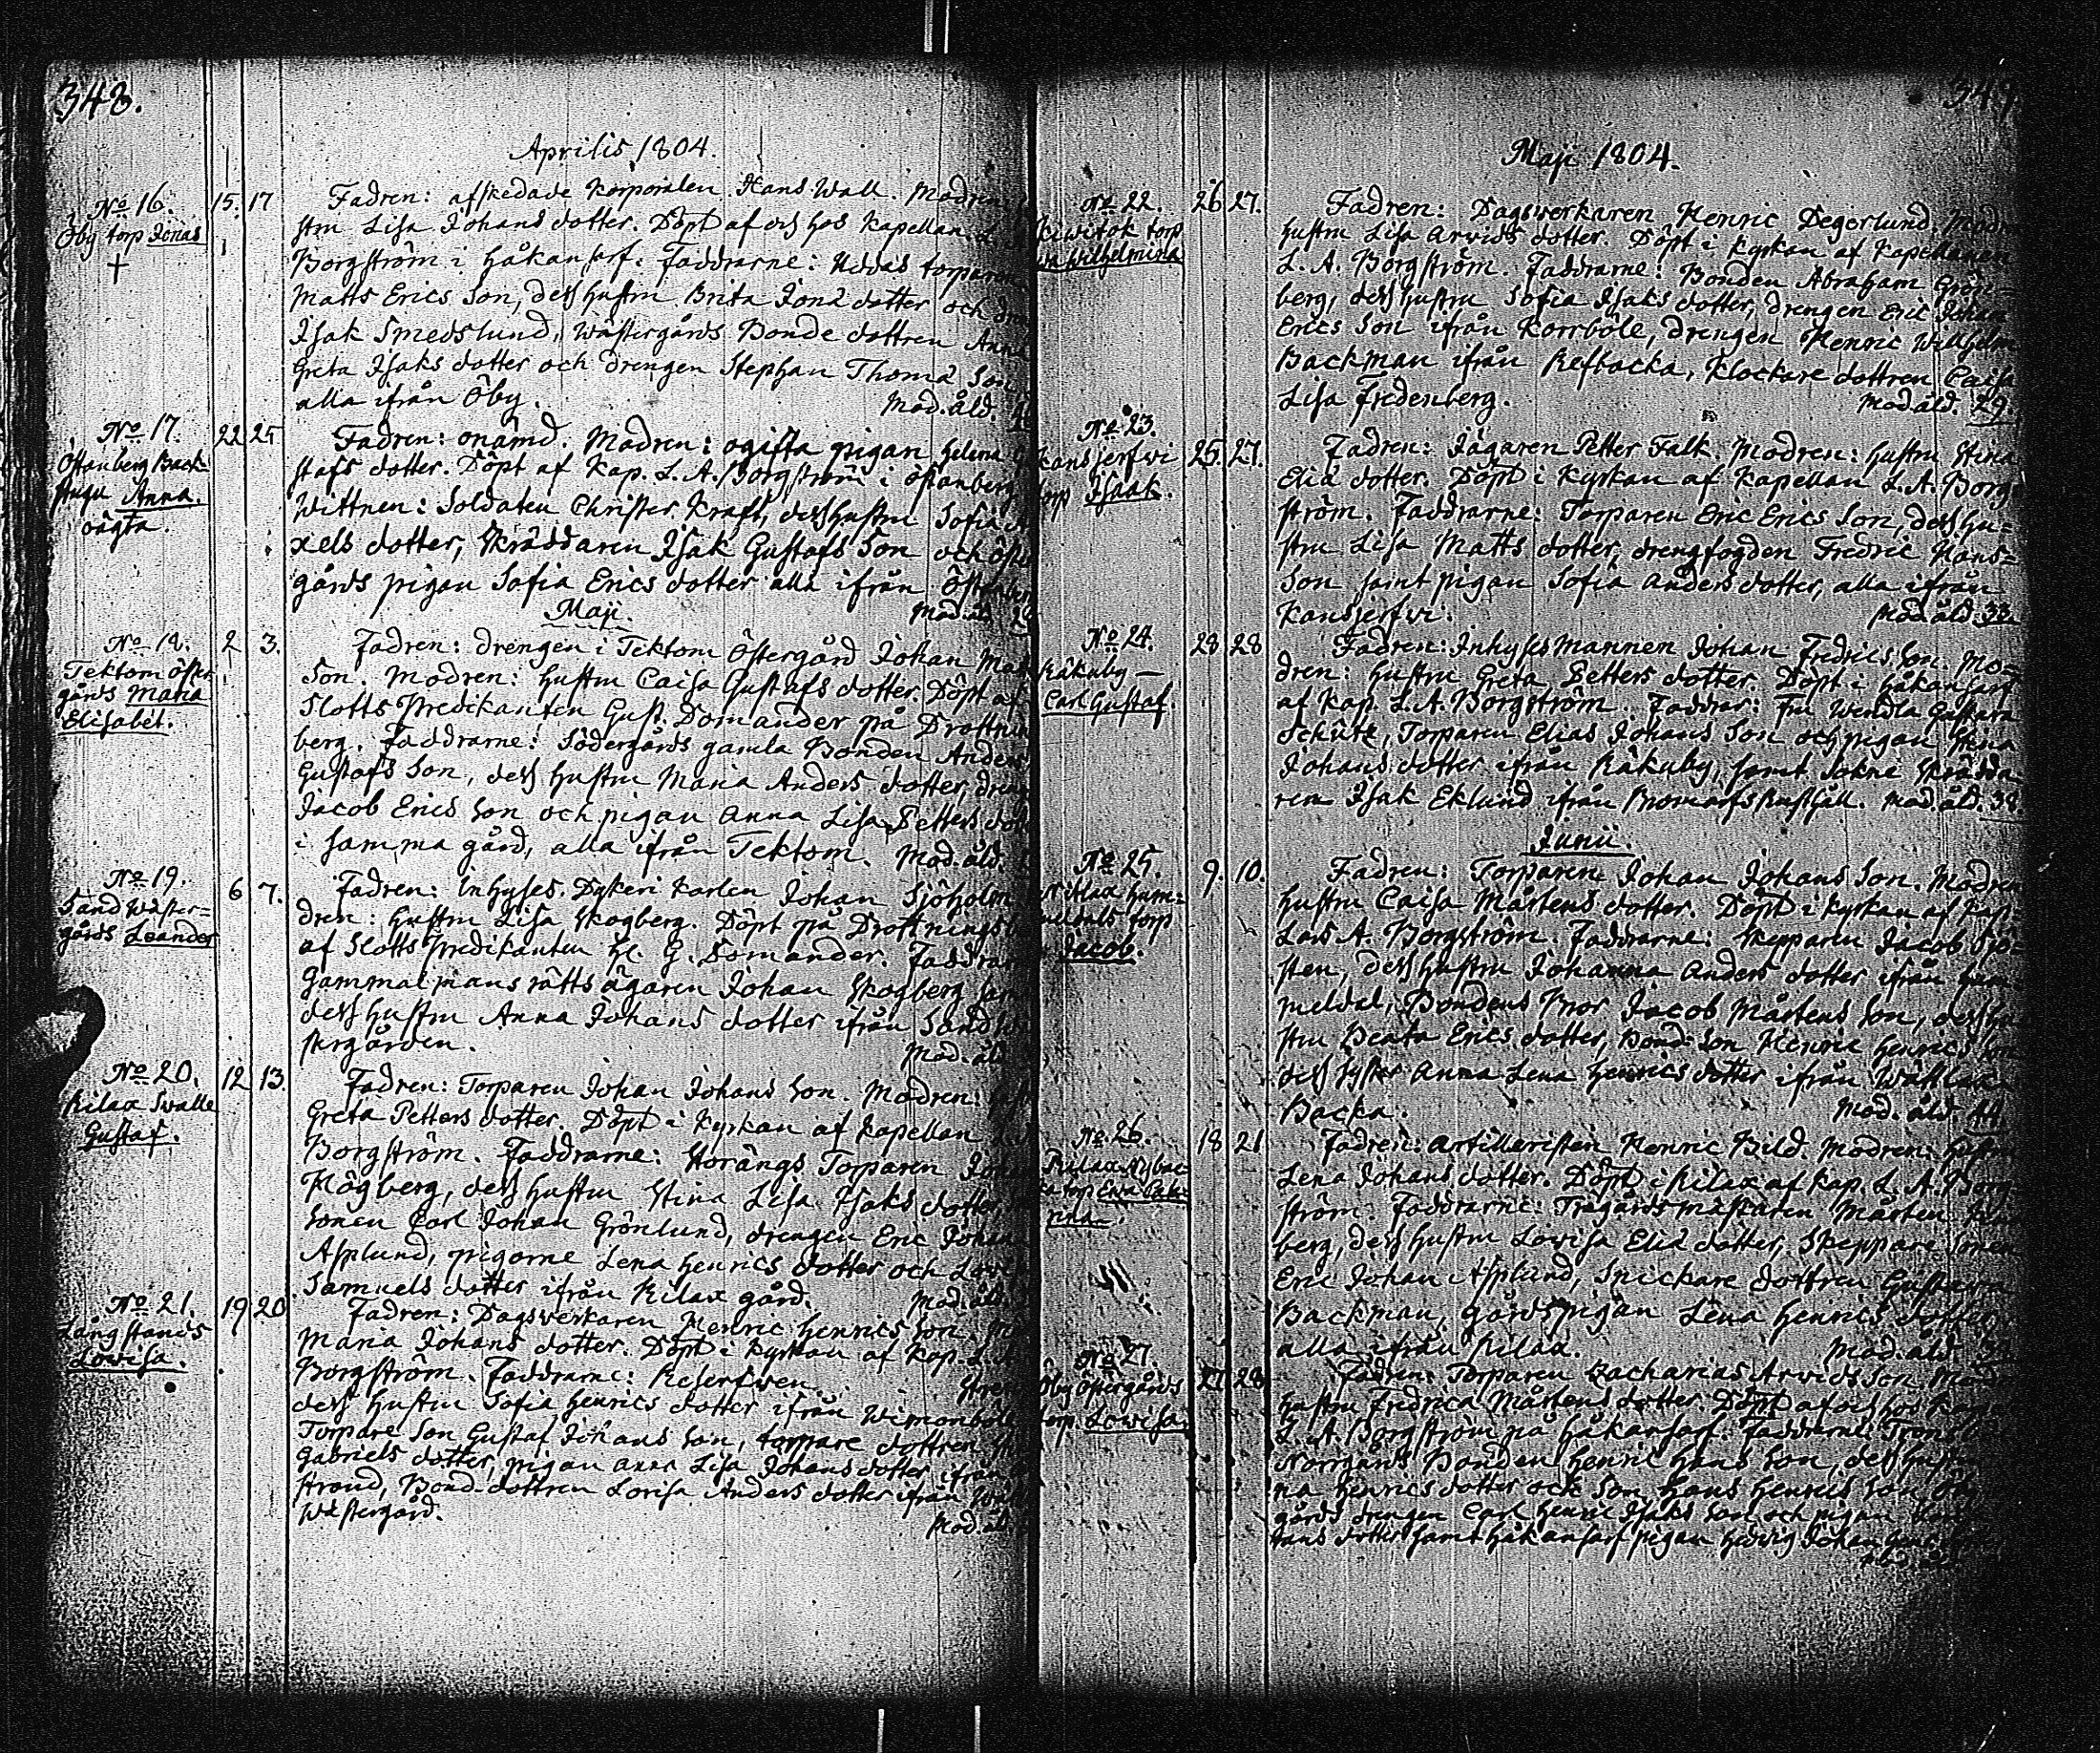 348.
Aprilis 1804.
No 16.
Öby torp Jonas
15. 17
Fadren: afskedade Korporalen Hans Wall. Modren
stru Lisa Johans dotter. Döpt af och hos Kapellan L.
Borgström i Håkansarf. Faddrarne: Uddas torparen
Matts Erics Son, dess hustru Brita Jonä dotter och
Isak Smedslund, Wästergårds Bonde dottren Anna
Greta Isaks dotter och drengen Stephan Thomä Son
alla ifrån Öby. Mod. åld.
No 17.
Östanberg Back-
stugu Anna.
oägta.
22 25
Fadren: onämd. Modren: ogifta pigan Helena
stafs dotter. Döpt af Kap. L. A. Borgström i Östanberg
Wittnen: Soldaten Christer Kraft, dess hustru Sofia
xels dotter, Skräddaren Isak Gustafs Son och Öster
gårds pigan Sofia Erics dotter alla ifrån Östanberg
Mod. åld.
Maji.
No 18.
Tektom Öster
gårds Maria
Elisabet.
2 3.
Fadren: drengen i Tektom Östergård Johan Matts
Son. Modren: hustru Caisa Gustafs dotter. Döpt af
Slotts Predikanten Gust. Domander på Drottning
berg. Faddrarne: Södergårds gamla Bonden Anders
Gustafs Son, dess hustru Maria Anders dotter, drengen
Jacob Erics Son och pigan Anna Lisa Petters dotter
i samma gård, alla ifrån Tektom. Mod. åld.
No 19.
Sand Wäster=
gårds Leander
6 7.
Fadren: Inhyses Dykeri Karlen Johan Sjöholm
dren: hustru Lisa Skogberg. Döpt på Drottningsb
af Slotts Predikanten H. G. Domander. Faddrar
Gammalmans rätts ägaren Johan Skogberg samt
dess hustru Anna Johans dotter ifrån Sand Wä
stergården. Mod. åld.
No 20.
Rilax Svalle
Gustaf.
12 13.
Fadren: Torparen Johan Johans Son. Modren:
Greta Petters dotter. Döpt i Kyrkan af Kapellan
Borgström. Faddrarne: Storängs Torparen Joh
Högberg, dess hustru Stina Lisa Isaks dotter,
Sonen Carl Johan Grönlund, drengen Eric Johan
Asplund, pigorne Lena Henrics dotter och Lovisa
Samuels dotter ifrån Rilax gård. Mod. åld.
No 21.
Långstands
Lowisa.
19 20
Fadren: Dagsverkaren Henric Henrics Son. M
Maria Johans dotter. Döpt i Kyrkan af Kap. L. A
Borgström. Faddrarne: Reserfwen.
dess hustru Sofia Henrics dotter ifrån Wimonböle
Torpare Son Gustaf Johans Son, torpare dottren
Gabriels dotter, pigan Anna Lisa Johans dotter ifrån
strand, Bond-dottren Lovisa Anders dotter ifrån
Wästergård. Mod. åld.
349.
Maji 1804.
No 22.
Kiwitok torp
Wilhelmina
26 27.
Fadren: Dagsverkaren Henric Degerlund, Modr
hustru Lisa Arvids dotter. Döpt i Kyrkan af Kapellanen
L. A. Borgström. Faddrarne: Bonden Abraham Grön=
berg, dess hustru Sofia Isaks dotter, drengen Eric Johan
Erics Son ifrån Korrböle, drengen Henric Wilhelm
Backman ifrån Refbacka, Klockare dottren Caisa
Lisa Fredenberg. Mod. åld. 29.
No 23.
Kansjerfwi
torp Isaak.
25. 27.
Fadren: Jägaren Petter Falk. Modren: hustru Stina
Eliä dotter. Döpt i Kyrkan af Kapellan L. A. Borg-
ström. Faddrarne: Torparen Eric Erics Son, dess hu=
stru Lisa Matts dotter, drengfogden Fredric Hans=
Son samt pigan Sofia Anders dotter, alla ifrån
Kansjerfwi. Mod. åld. 33.
No 24.
Råkuby —
Carl Gustaf.
28 28
Fadren: Inhyses Mannen Johan Fredrics Son. Mo=
dren: hustru Greta Petters dotter. Döpt i Håkansarf
af Kap. L. A. Borgström. Faddrar: Fru Wendla Gustava
Schütz, Torparen Elias Johans Son och pigan Stina
Johans dotter ifrån Råkuby, samt Sokne Skrädda
ren Isak Eklund ifrån Bromarfs Rusthåll. Mod. åld. 38
Junii.
No 25.
hum=
meldals torp
Jacob.
9. 10.
Fadren: Torparen Johan Johans Son. Modren
hustru Caisa Mårtens dotter. Döpt i Kyrkan af Kap.
Lars A. Borgström. Faddrarne: Skepparen Jacob Sjö-
sten, dess hustru Johanna Anders dotter ifrån hum
meldal, Bondens Bror Jacob Mårtens Son, dess hu
stru Beata Erics dotter, Bond-Son Henric Henrics Son
dess Syster Anna Lena Henrics dotter ifrån Wättlax
Backa. Mod. åld. 44
No 26.
Rilax Nybac
ka torp Ewa Catha
rina.
18 21
Fadren: Artilleristen Henric Bild. Modren: hustru
Lena Johans dotter. Döpt i Rilax af Kap. L. A. Borg-
ström. Faddrarne: Trägårdsmästaren Mårten
berg, dess hustru Lowisa Eliä dotter, Skeppare Sonen
Eric Johan Asplund, Snickare dottren Gustava
Backman, gårdspigan Lena Henrics dotter
alla ifrån Rilax. Mod. åld.
No 27.
Öby Östergårds
torp Lowisa.
27 28
Fadren: Torparen Zacharias Arvids Son. Modren
hustru Fredrica Mårtens dotter. Döpt af och hos Kap
L. A. Borgström på Håkansarf. Faddrarne:
Norrgårds Bonden Henric Hans Son, dess hustru
na Henrics dotter och Son Hans Henrics Son
gårds drengen Carl Henric Isaks Son och pigan
hans dotter samt Håkansarf pigan Hedvig Johans